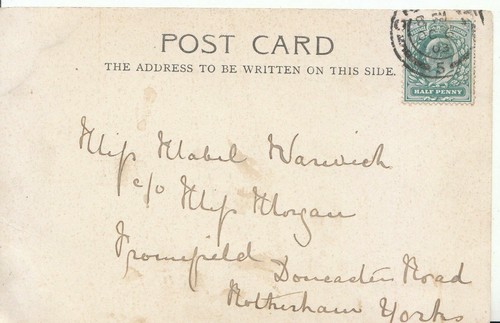 POST CARD
THE ADDRESS TO BE WRITTEN ON THIS SIDE.
HALF PENNY
Miss Mabel Warwick
c/o Miss Morgan
Fromefield
Doncaster Road
Rotherham Yorks